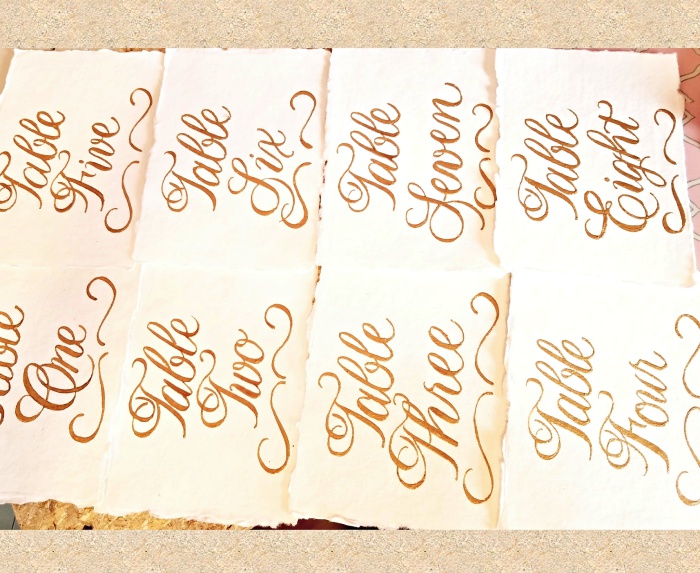 Table
Five
Table
Six
Table
Seven
Table
Eight
Table
One
Table
Two
Table
Three
Table
Four